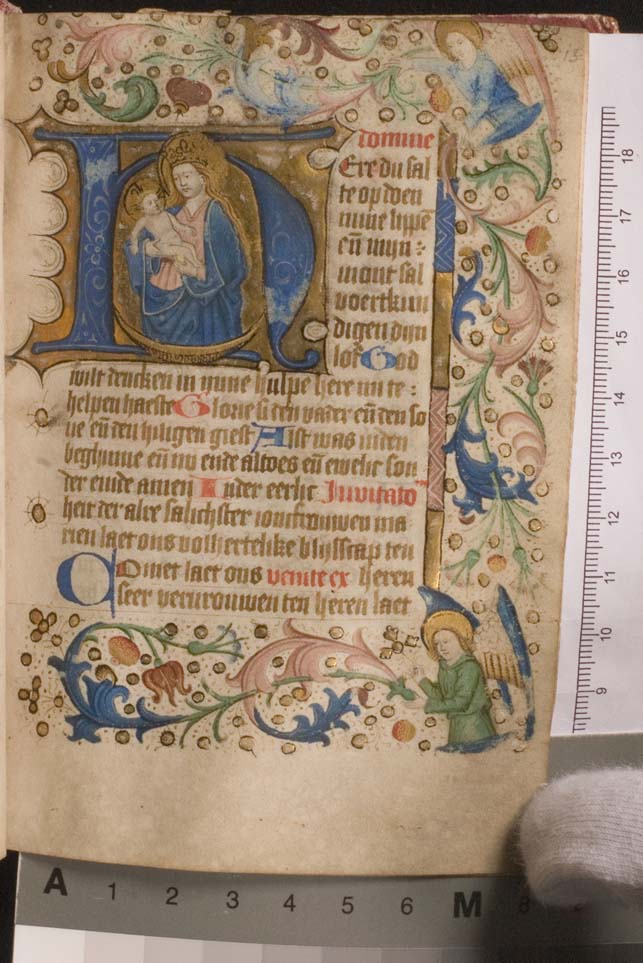 15
domine
H Ere du sal
te op doen
mine lippē
eñ mijn :
mont sal
voertkun
digen dijn
lof God
wilt dencken in mine hulpe here mi te :
helpen haeste Glorie si den vader eñ den so
ne eñ den hiligen giest Alst was inden
beghinne eñ nu ende altoes eñ ewelic son
der einde amen Inder eerlic Invitato
heit der alre salichster ioncfrouwen ma
rien laet ons volhertelike bliisscap ten
Comet laet ons venite ex heren
seer vervrouwen ten heren laet
18
17
16
15
14
13
12
11
10
9
A 1 2 3 4 5 6 M 8